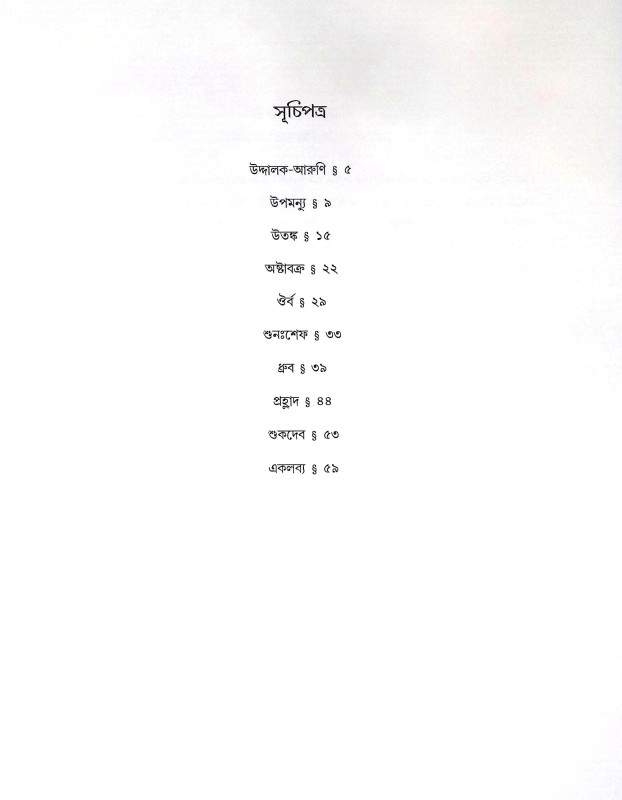 সূচিপত্র
উদ্দালক-আরুণি § ৫
উপমন্যু § ৯
উতঙ্ক § ১৫
অষ্টাবক্র § ২২
ঔর্ব § ২৯
শুনঃশেফ § ৩৩
ধ্রুব § ৩৯
প্রহ্লাদ § ৪৪
শুকদেব § ৫৩
একলব্য § ৫৯